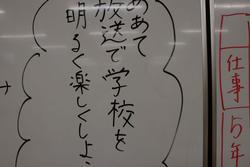 めあて
放送で学校を
明るく楽しくしよう
仕事
5年